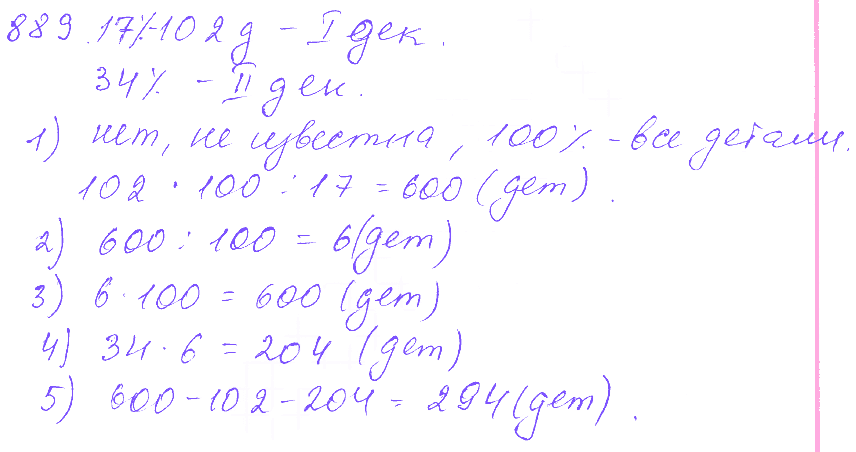 889. 17% - 102 д - I дек.
34% - II дек.
1) нет, не известна, 100% - все детали.
102 · 100 : 17 = 600 (дет).
2) 600 : 100 = 6 (дет)
3) 6 · 100 = 600 (дет)
4) 34 · 6 = 204 (дет)
5) 600 - 102 - 204 = 294 (дет).